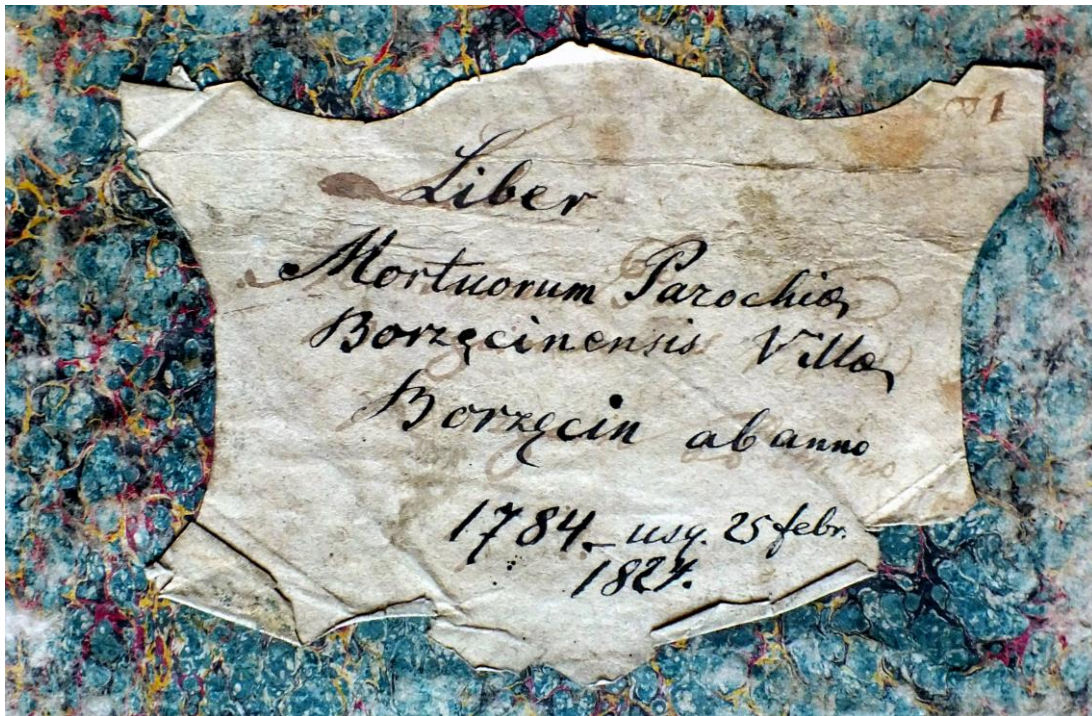 Liber
Mortuorum Parochiæ
Borzęcinensis Villæ
Borzęcin ab anno
1784 _ usq. 25 febr.
1827.